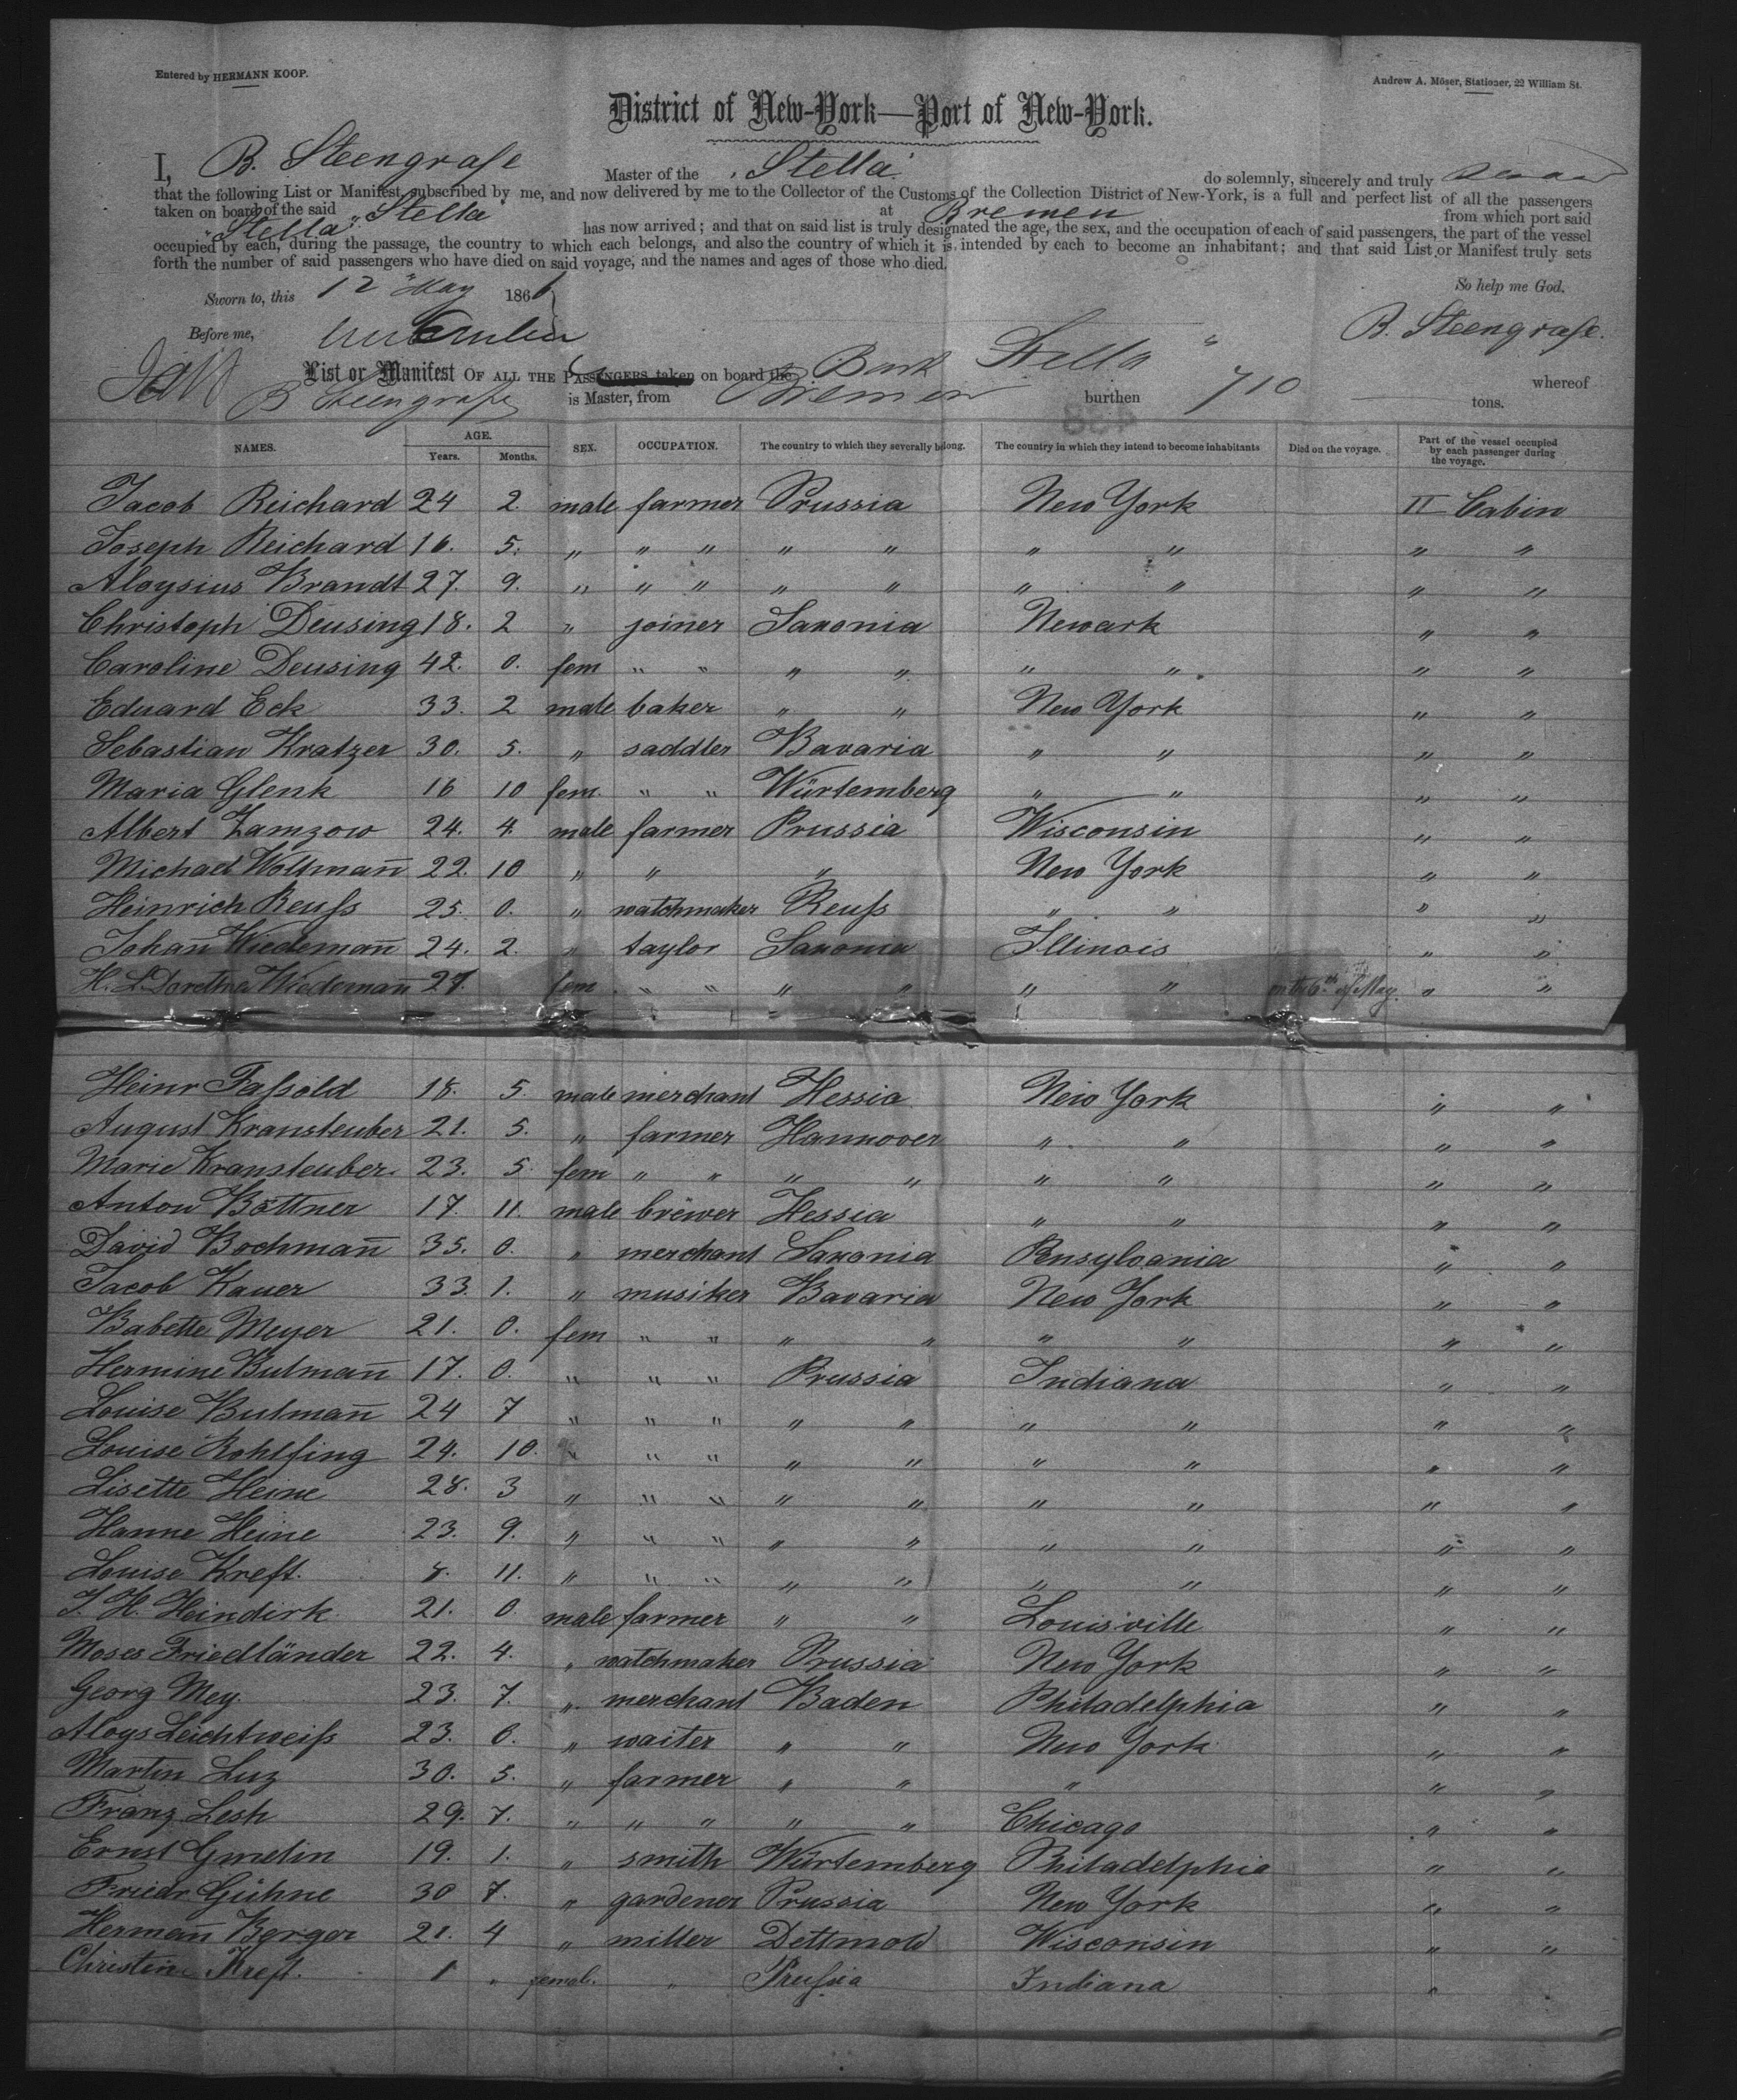 Entered by HERMANN KOOP.
Andrew A. Möser, Stationer, 22 William St.
District of New-York—Port of New-York.
I, B. Steengrafe Master of the "Stella" do solemnly, sincerely and truly swear
that the following List or Manifest, subscribed by me, and now delivered by me to the Collector of the Customs of the Collection District of New-York, is a full and perfect list of all the passengers
taken on board of the said "Stella" at Bremen from which port said
"Stella" has now arrived; and that on said list is truly designated the age, the sex, and the occupation of each of said passengers, the part of the vessel
occupied by each, during the passage, the country to which each belongs, and also the country of which it is intended by each to become an inhabitant; and that said List or Manifest truly sets
forth the number of said passengers who have died on said voyage, and the names and ages of those who died.
So help me God.
Sworn to, this 12 May 1866
B. Steengrafe.
Before me,
List or Manifest OF ALL THE PASSENGERS taken on board the Bark Stella whereof
B Steengrafe is Master, from Bremen burthen 710 tons.
NAMES. AGE. Years. Months. SEX. OCCUPATION. The country to which they severally belong. The country in which they intend to become inhabitants Died on the voyage. Part of the vessel occupied by each passenger during the voyage.
Jacob Reichard 24 2. male farmer Prussia New York II Cabin
Joseph Reichard 16. 5. " " " " " " " " "
Aloysius Brandt 27. 9. " " " " " " " " "
Christoph Deusing 18. 2 " joiner Saxonia Newark " "
Caroline Deusing 42. 0. fem " " " " " " " "
Eduard Eck 33. 2 male baker " " New York " "
Sebastian Kratzer 30. 5. " saddler Bavaria " " " "
Maria Glenk 16 10 fem. " " Würtemberg " " " "
Albert Zamzow 24. 4. male farmer Prussia Wisconsin " "
Michael Woltman̄ 22. 10 " " " New York " "
Heinrich Reuſs 25. 0. " watchmaker Reuſs " " " "
Johan̄ Wiedeman̄ 24. 2. " taylor Saxonia Illinois " "
H. L. Dorethea Wiedeman̄ 27. fem " " " " " " on the 6th of May. " "
Heinr Faſsold 18. 5. male merchant Hessia New York " "
August Kransteuber 21. 5. " farmer Hannover " " " "
Marie Kransteuber. 23. 5. fem " " " " " " " "
Anton Böttner 17. 11. male brewer Hessia " " " "
David Bochman̄ 35. 0. " merchant Saxonia Pensylvania " "
Jacob Kauer 33. 1. " musiker Bavaria New York " "
Babette Meyer 21. 0. fem " " " " " " " "
Hermine Butman̄ 17. 0. " " " Prussia Indiana " "
Louise Butman̄ 24 7 " " " " " " " " "
Louise Rohlfing 24. 10. " " " " " " " " "
Lisette Heine 28. 3 " " " " " " " " "
Hanne Heine 23. 9. " " " " " " " " "
Louise Kreft. 8. 11. " " " " " " " " "
J. H. Heindirk 21. 0. male farmer " " Louisville " "
Moses Friedländer 22. 4. " watchmaker Prussia New York " "
Georg Mey. 23. 7. " merchant Baden Philadelphia " "
Aloys Leichtweiſs 23. 6. " waiter " " New York " "
Martin Luz 30. 5. " farmer " " " " "
Franz Lesh 29. 7. " " " " " Chicago " "
Ernst Gmelin 19. 1. " smith Würtemberg Philadelphia " "
Friedr Gühne 30 7. " gardener Prussia New York " "
Herman̄ Berger 21. 4 " miller Dettmold Wisconsin " "
Christine Kreft. 1 " femal. " Pruſsia Indiana "